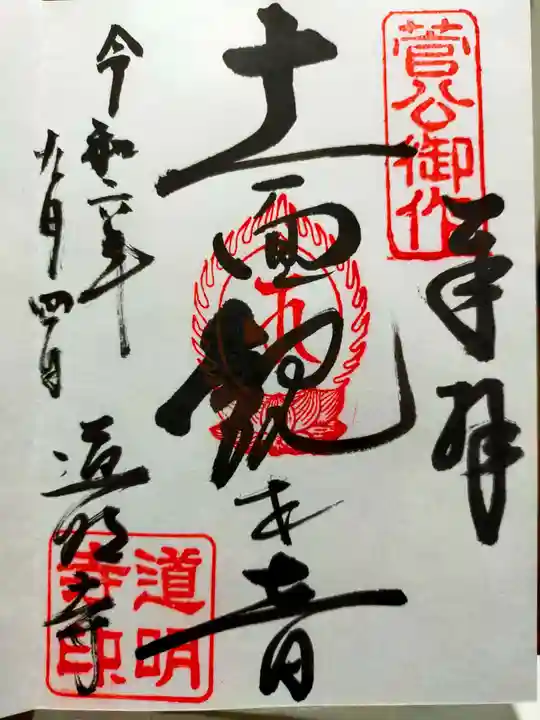 菅公御作
奉拝
十一面観世音
令和六年
九月四日
道明寺
道明寺印